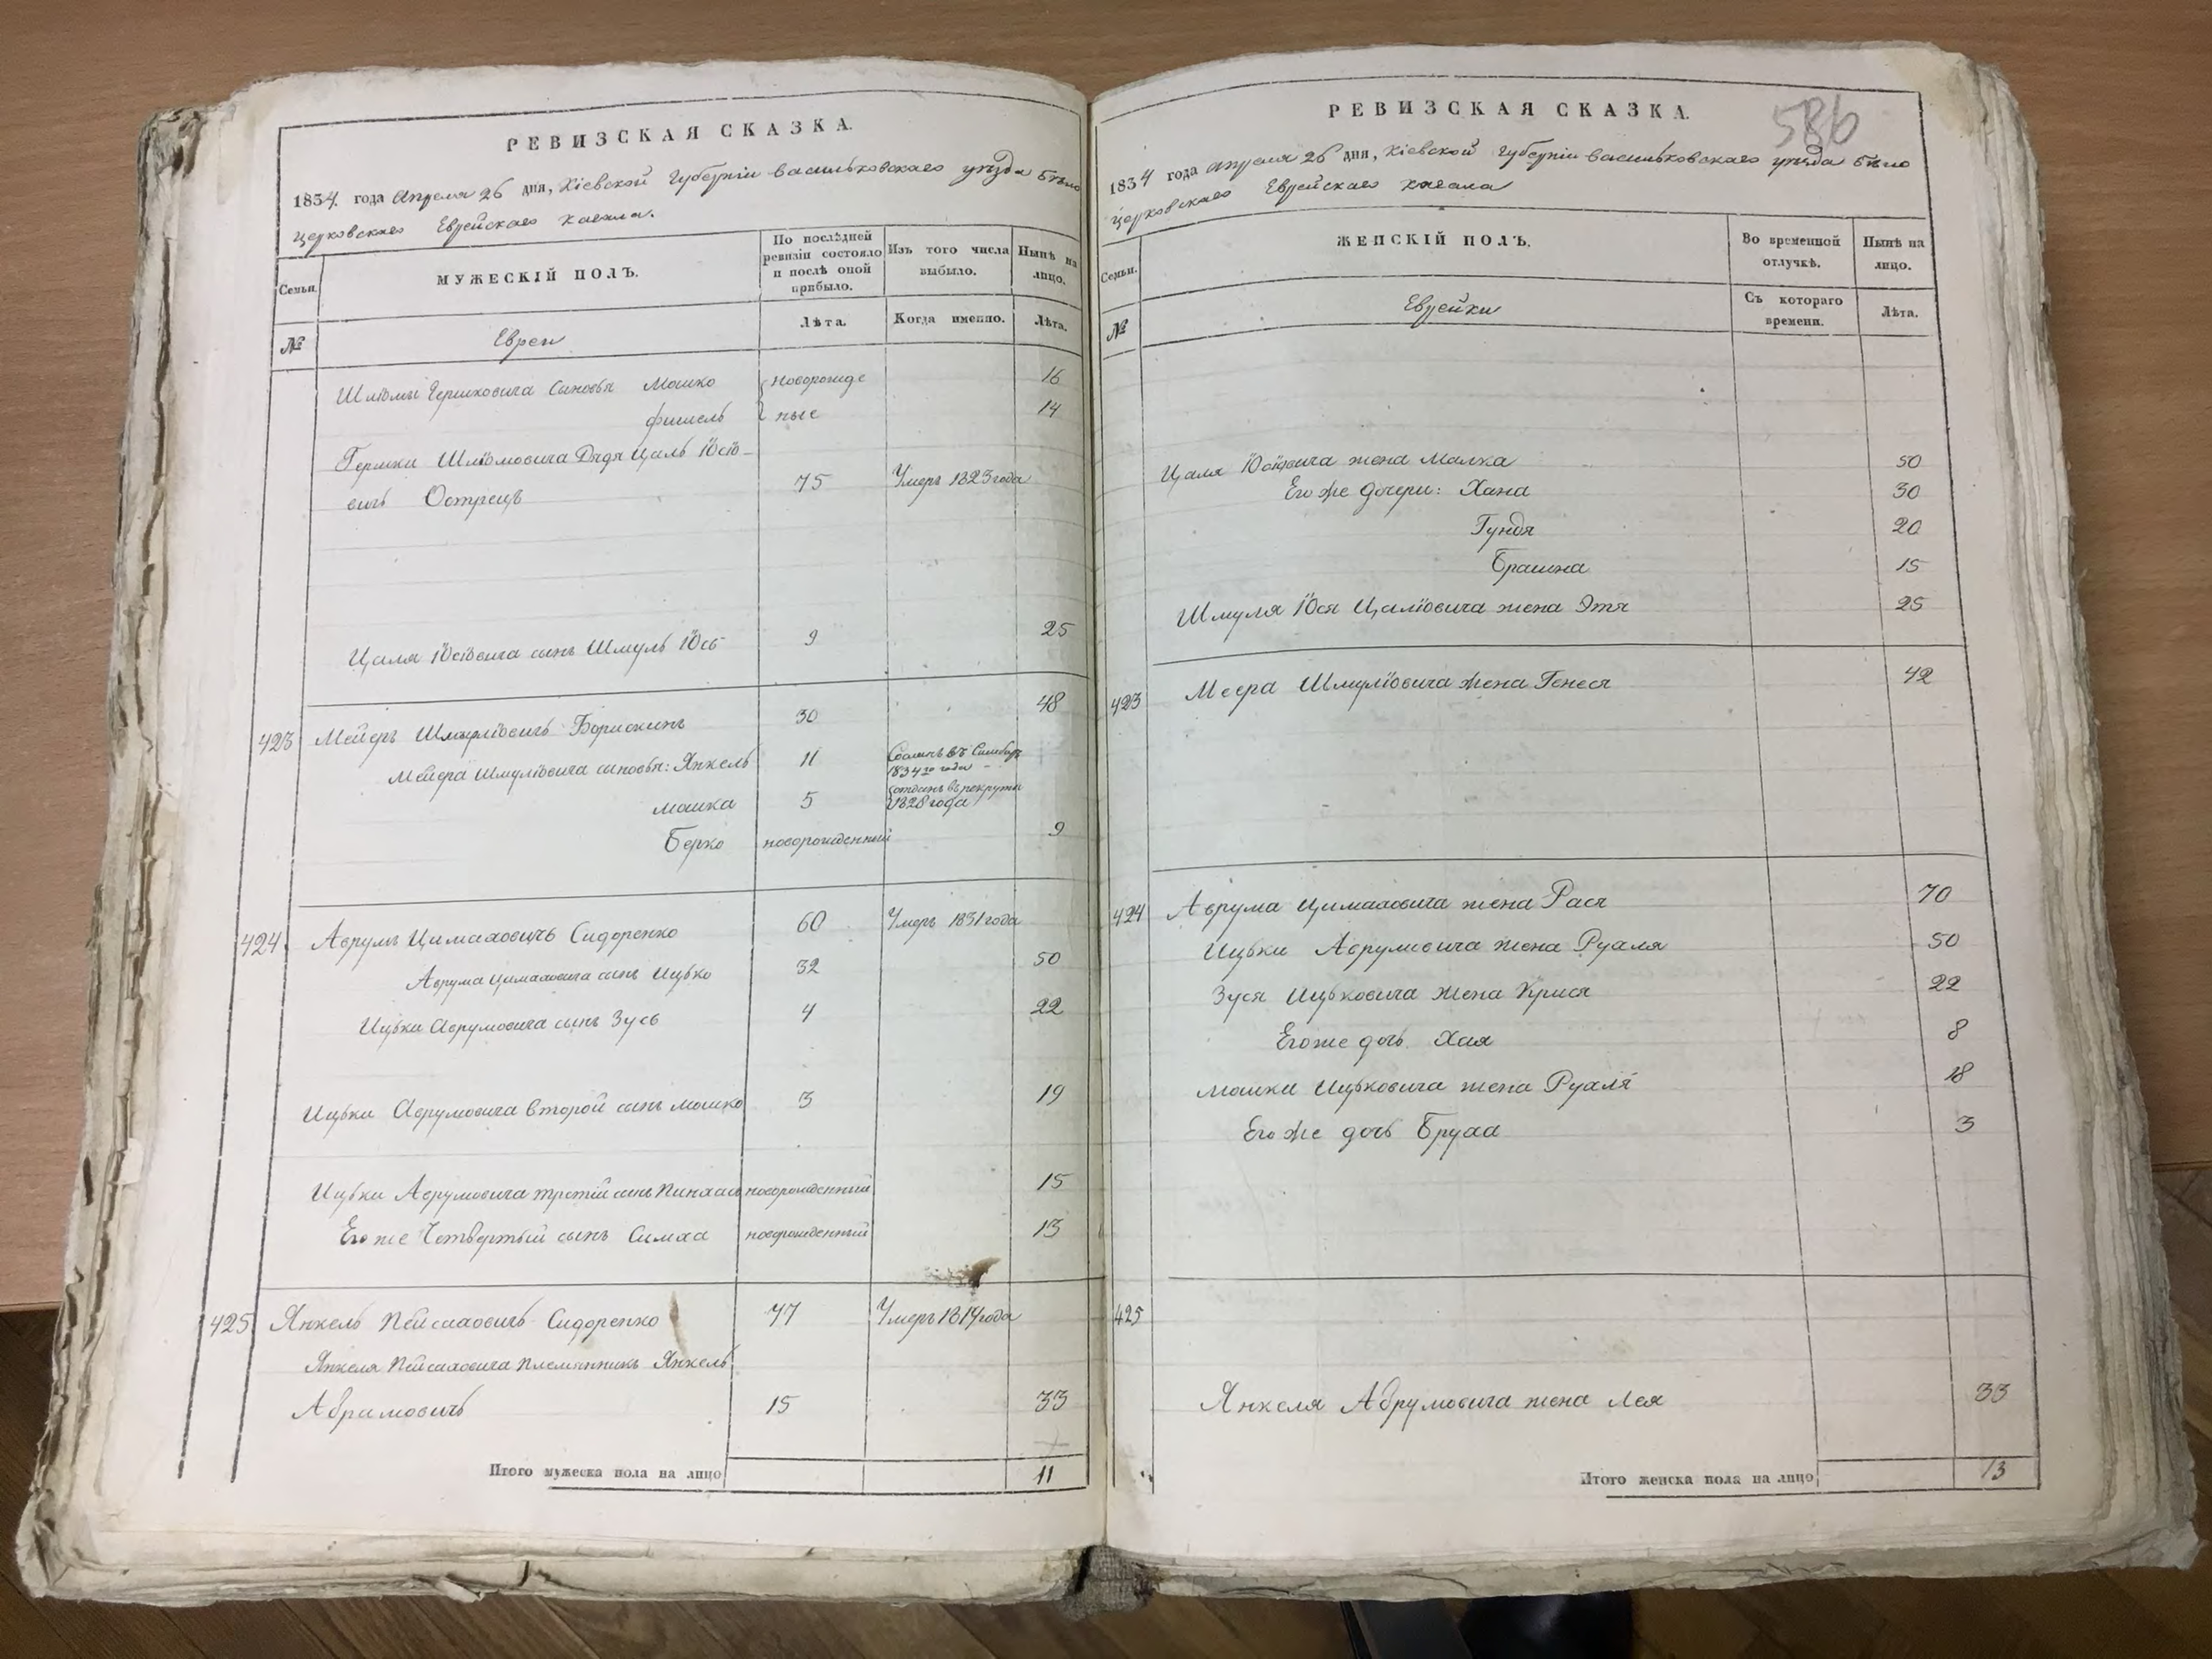 РЕВИЗСКАЯ СКАЗКА.
1834 года Апреля 26 дня, Кіевской Губерніи Васильковскаго уезда Бело
церковскаго Еврейскаго Кагала.
Семьи.
МУЖЕСКІЙ ПОЛЪ.
По послѣдней ревизіи состояло и послѣ оной прибыло.
Изъ того числа выбыло.
Нынѣ на лицо.
№
Евреи
Лѣта.
Когда именно.
Лѣта.
Шліомы Гершковича сыновья Мошко новорожде 16
Фишель ные 14
Гершки Шліомовича Дядя Цаль Іосіо-
вичъ Острецъ 75 Умеръ 1823 года
Цаля Іосіовича сынъ Шмуль Іось 9 25
423 Мейеръ Шмуліовичъ Борискинъ 30 48
Мейера Шмуліовича сыновья: Янкель 11
1834го года
Мошка 5 отданъ въ рекруты
1828 года
Берко новорожденный 9
424 Аврумъ Цималовичъ Сидоренко 60 Умеръ 1831 года
Аврума Цималовича сынъ Ицько 32 50
Ицьки Аврумовича сынъ Зусь 4 22
Ицьки Аврумовича второй сынъ Мошко 3 19
Ицьки Аврумовича третій сынъ Пинхас новорожденный 15
Его же Четвертый сынъ Симха новорожденный 13
425 Янкель Пейсаховичъ Сидоренко 77 Умеръ 1819 года
Янкеля Пейсаховича племянникъ Янкель
Абрамовичъ 15 33
Итого мужеска пола на лицо 11
РЕВИЗСКАЯ СКАЗКА.
586
1834 года Апреля 26 дня, Кіевской Губерніи Васильковскаго уезда Бело
церковскаго Еврейскаго Кагала
Семьи.
ЖЕНСКІЙ ПОЛЪ.
Во временной отлучкѣ.
Нынѣ на лицо.
№
Еврейки
Съ котораго времени.
Лѣта.
Цаля Іосіовича жена Малка 50
Его же дочери: Хана 30
Гундя 20
Брашна 15
Шмуля Іося Цаліовича жена Этя 25
423 Меера Шмуліовича жена Генеся 42
424 Аврума Цималовича жена Рася 70
Ицьки Аврумовича жена Рухля 50
Зуся Ицьковича жена Крися 22
Его же дочь Хая 8
Мошки Ицьковича жена Рухля 18
Его же дочь Бруха 3
425
Янкеля Абрумовича жена Лея 33
Итого женска пола на лицо 13